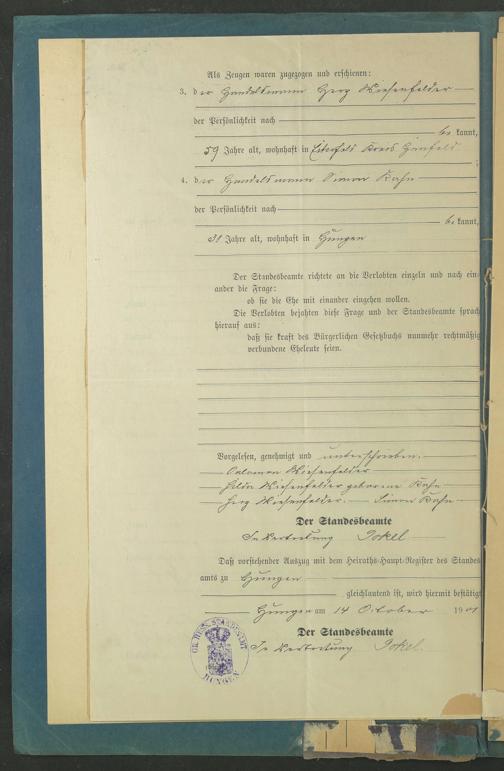 Als Zeugen waren zugezogen und erschienen:
3. der Handelsmann Herz Wiesenfelder
der Persönlichkeit nach
be kannt,
59 Jahre alt, wohnhaft in Eiterfeld Kreis Hünfeld
;
4. der Handelsmann Simon Kahn
der Persönlichkeit nach
be kannt,
31 Jahre alt, wohnhaft in Hungen
Der Standesbeamte richtete an die Verlobten einzeln und nach ein
ander die Frage:
ob sie die Ehe mit einander eingehen wollen.
Die Verlobten bejahten diese Frage und der Standesbeamte sprach
hierauf aus:
daß sie kraft des Bürgerlichen Gesetzbuchs nunmehr rechtmäßig
verbundene Eheleute seien.
Vorgelesen, genehmigt und unterschrieben.
Salomon Wiesenfelder
Hilda Wiesenfelder geborene Kahn
Herz Wiesenfelder. Simon Kahn
Der Standesbeamte
In Vertretung
Daß vorstehender Auszug mit dem Heiraths-Haupt-Register des Standes
amts zu Hungen
gleichlautend ist, wird hiermit bestätigt
Hungen am 14 October 1901
Der Standesbeamte
In Vertretung
GR. HESS. STANDESAMT
HUNGEN